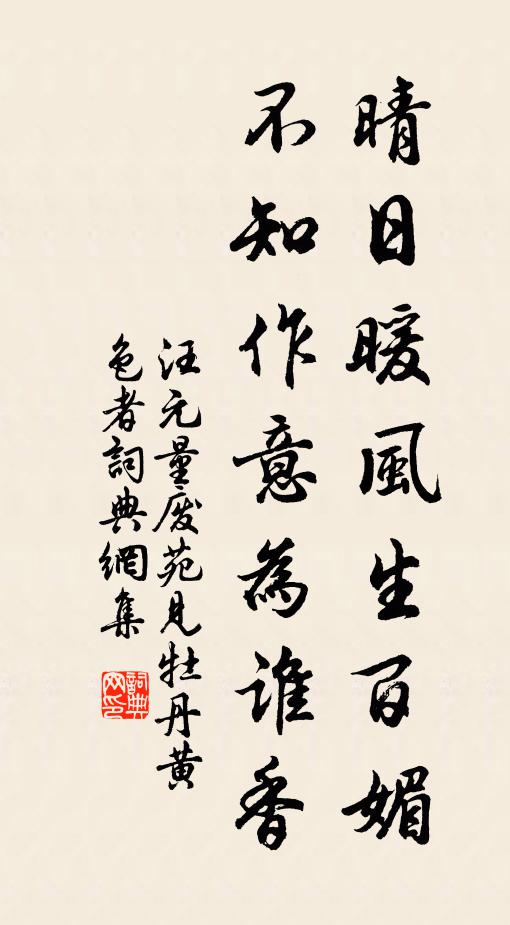 晴日暖風生百媚
不知作意為誰香
汪元量廢苑見牡丹黃
色者詞典網集
詞典
网印